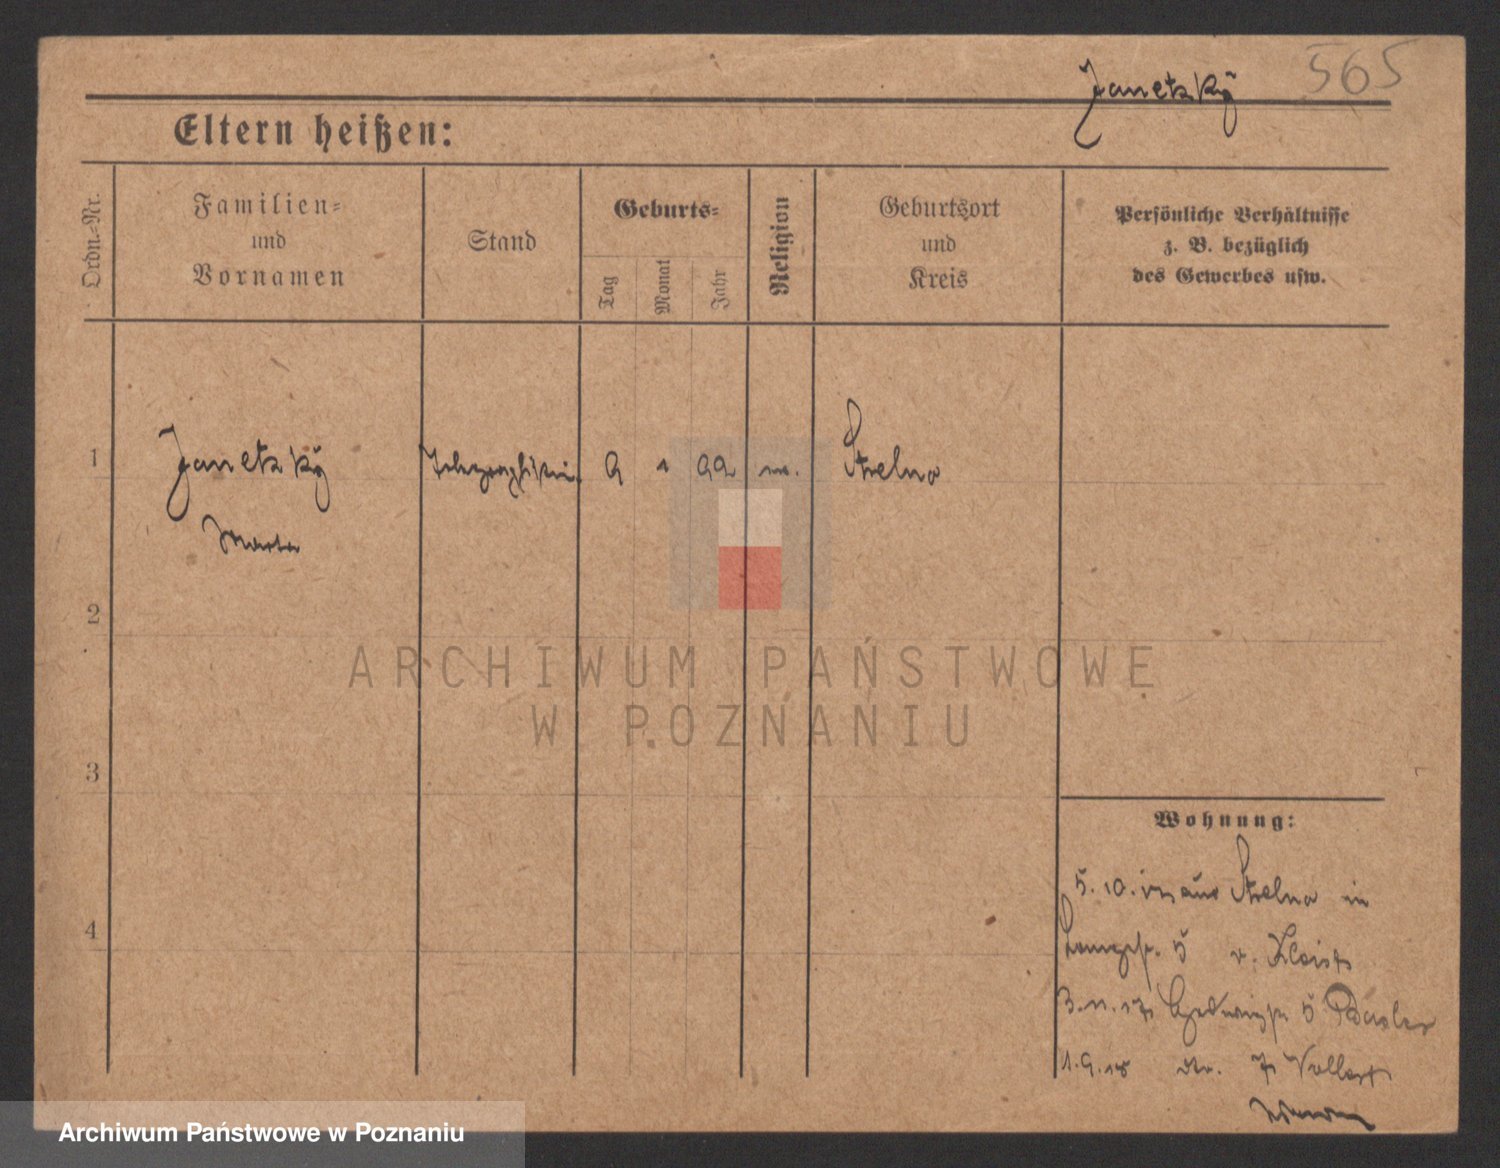 Janetzky 565
Eltern heißen:
Ordn.-Nr.
Familien- und Vornamen
Stand
Geburts-
Tag
Monat
Jahr
Religion
Geburtsort und Kreis
Persönliche Verhältnisse z. B. bezüglich des Gewerbes usw.
1 Janetzky Telegraphistin 9 1 99 Strelno
Marta
2
ARCHIWUM PAŃSTWOWE
W POZNANIU
3
Wohnung:
5. 10. aus Strelno in
4
5 v. Kleist
3. 11. 17 Hedwigstr 5
1. 9. 18 7 Vollert
Archiwum Państwowe w Poznaniu